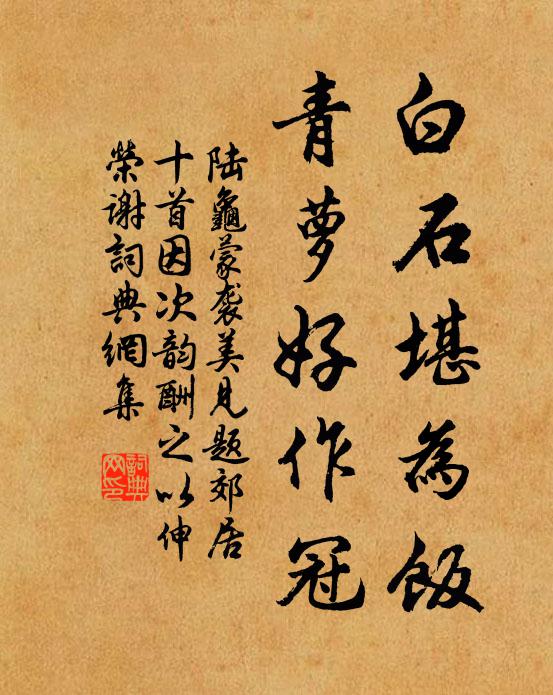 白石堪為飯
青萝好作冠
陆龜蒙袭美見题郊居
十首因次韵酬之以伸
榮谢詞典網集
詞典
网印